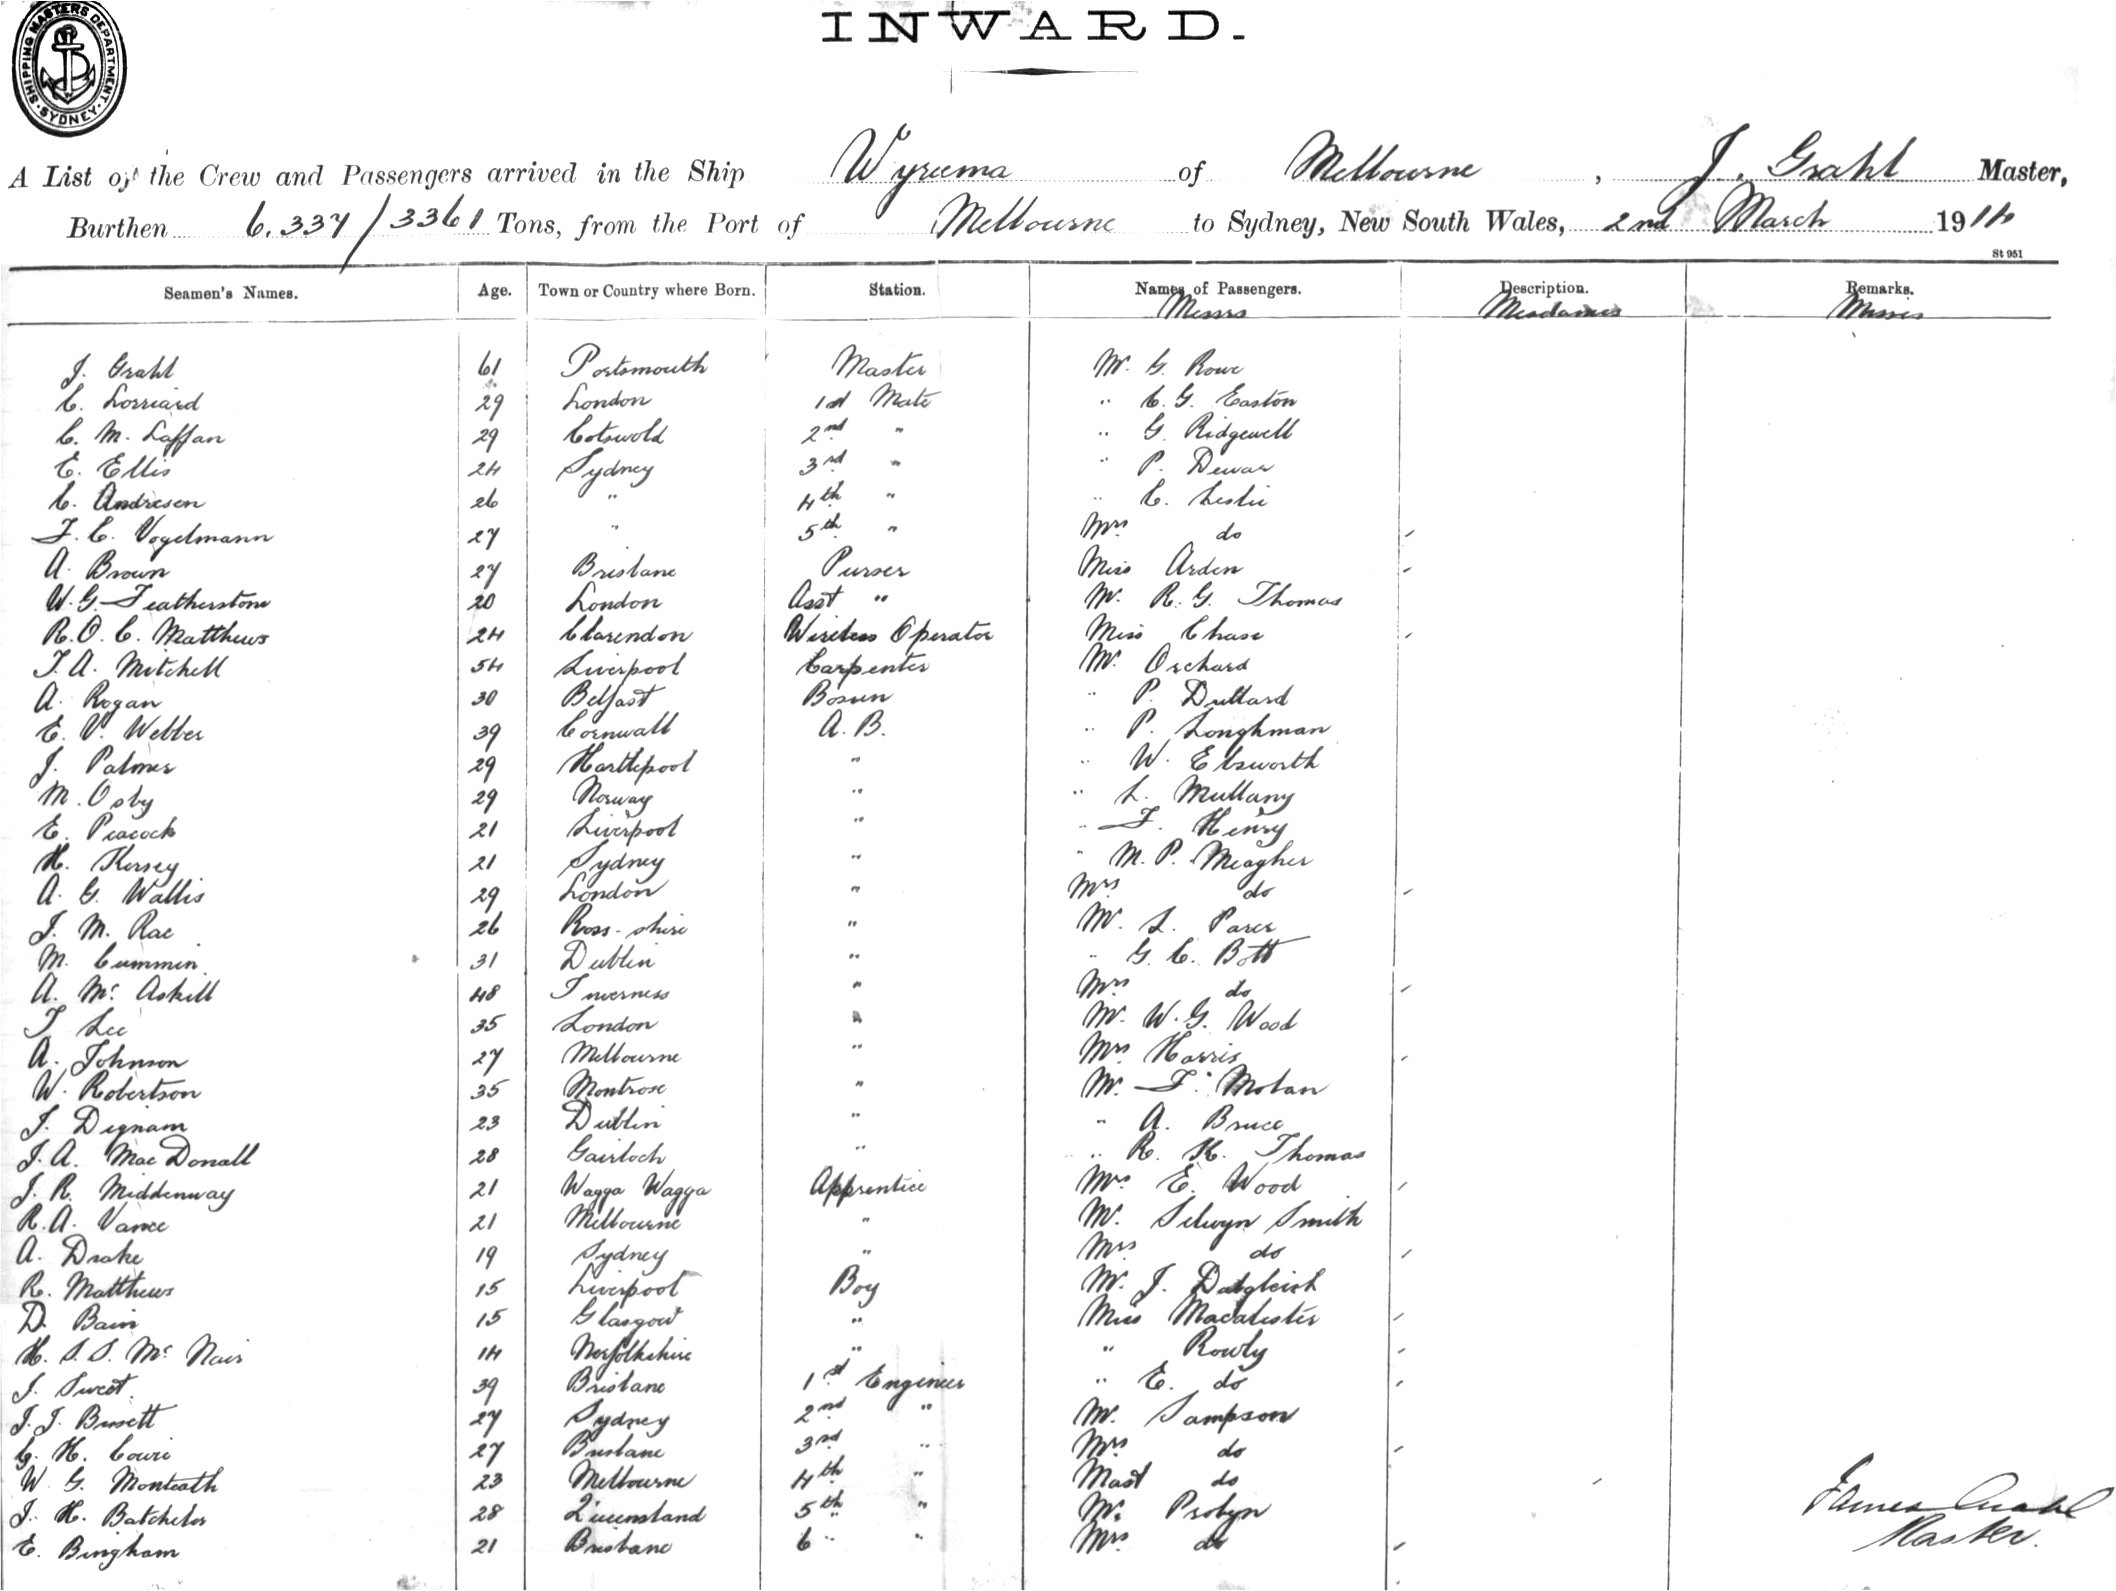 SHIPPING MASTERS DEPARTMENT. SYDNEY
INWARD.
A List of the Crew and Passengers arrived in the Ship Wyreema of Melbourne, J. Grahl Master,
Burthen 6.337/3361 Tons, from the Port of Melbourne to Sydney, New South Wales, 2nd March 1914
St 951
Seamen's Names. Age. Town or Country where Born. Station. Names of Passengers. Description. Remarks.
Messrs Mesdames Misses
J. Grahl 61 Portsmouth Master Mr. G. Rowe
C. Lorriard 29 London 1st Mate " C. G. Easton
C. M. Laffan 29 Cotswold 2nd " " G. Ridgewell
E. Ellis 24 Sydney 3rd " " P. Dewar
C. Andresen 26 " 4th " " C. Leslie
F. C. Vogelmann 27 " 5th " Mrs do
A. Brown 27 Brisbane Purser Miss Arden
W. G. Featherstone 20 London Asst " Mr. R. G. Thomas
R. O. C. Matthews 24 Clarendon Wireless Operator Miss Chase
T. A. Mitchell 54 Liverpool Carpenter Mr. Orchard
A. Rogan 30 Belfast Bosun " P. Dullard
E. V. Webber 39 Cornwall A. B. " P. Longhman
J. Palmer 29 Hartlepool " " W. Ebsworth
M. Osby 29 Norway " " L. Mullany
E. Peacock 21 Liverpool " " F. Henry
H. Kersey 21 Sydney " " M. P. Meagher
A. G. Wallis 29 London " Mrs do
J. M. Rae 26 Ross-shire " Mr. L. Parer
M. Cummin 31 Dublin " " G. C. Bott
A. Mc Askill 48 Inverness " Mrs do
T Lee 35 London " Mr. W. G. Wood
A. Johnson 27 Melbourne " Mrs Harris
W. Robertson 35 Montrose " Mr. F. Molan
J. Dignam 23 Dublin " " A. Bruce
J. A. Mac Donall 28 Gairloch " " R. K. Thomas
J. R. Middenway 21 Wagga Wagga Apprentice Mrs E. Wood
R. A. Vance 21 Melbourne " Mr. Selwyn Smith
A. Drake 19 Sydney " Mrs do
R. Matthews 15 Liverpool Boy Mr. J. Dalgleish
D. Bain 15 Glasgow " Miss Macalister
H. S. S. Mc Nair 14 Norfolkshire " " Rowly
J. Sweet. 39 Brisbane 1st Engineer " E. do
J. J. Bussett 27 Sydney 2nd " Mr. Sampson
G. H. Cowie 27 Brisbane 3rd " Mrs do
W. G. Monteath 23 Melbourne 4th " Mast do
J. H. Batchelor 28 Queensland 5th " Mr. Probyn
E. Bingham 21 Brisbane 6 " " Mrs do
James Grahl
Master.